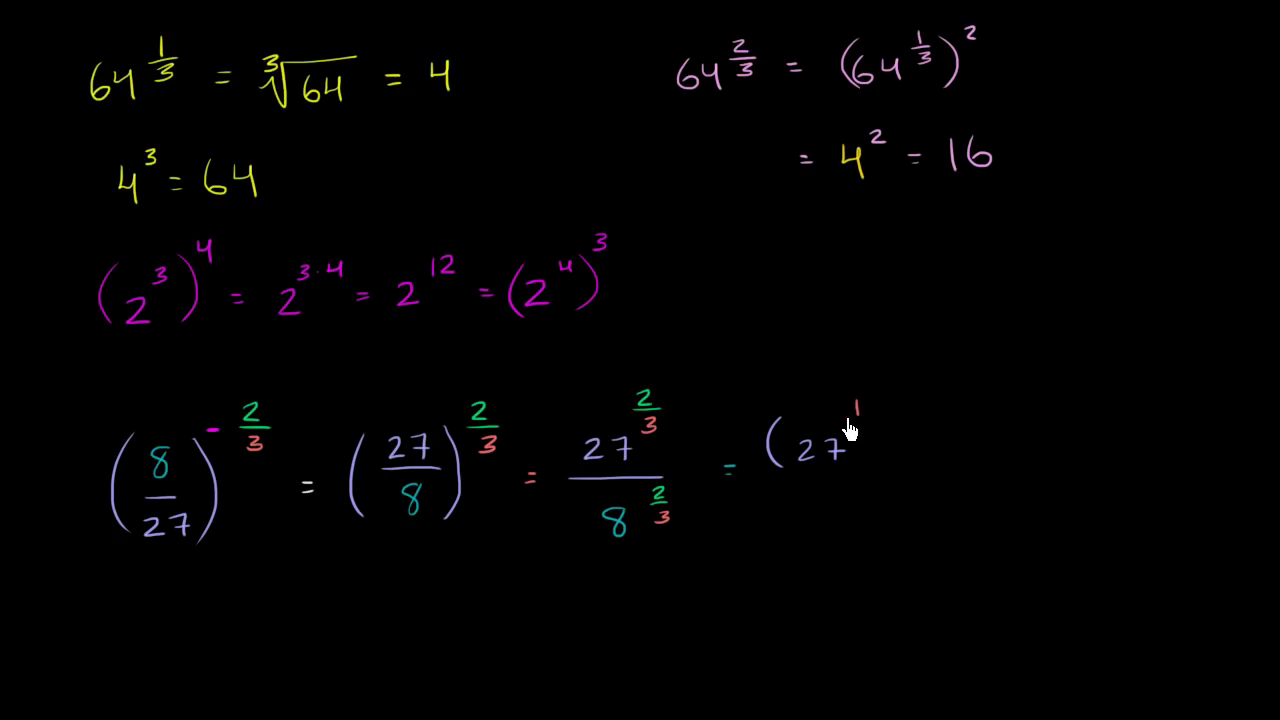 64^(1/3) = ∛64 = 4
64^(2/3) = (64^(1/3))^2
4^3 = 64
= 4^2 = 16
(2^3)^4 = 2^(3·4) = 2^12 = (2^4)^3
(8/27)^(-2/3) = (27/8)^(2/3) = 27^(2/3)/8^(2/3) = (27^1